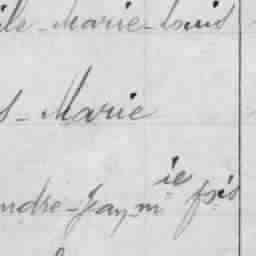 ile-Marie-Louis
s-Marie
ndre-Jean, m ie fois